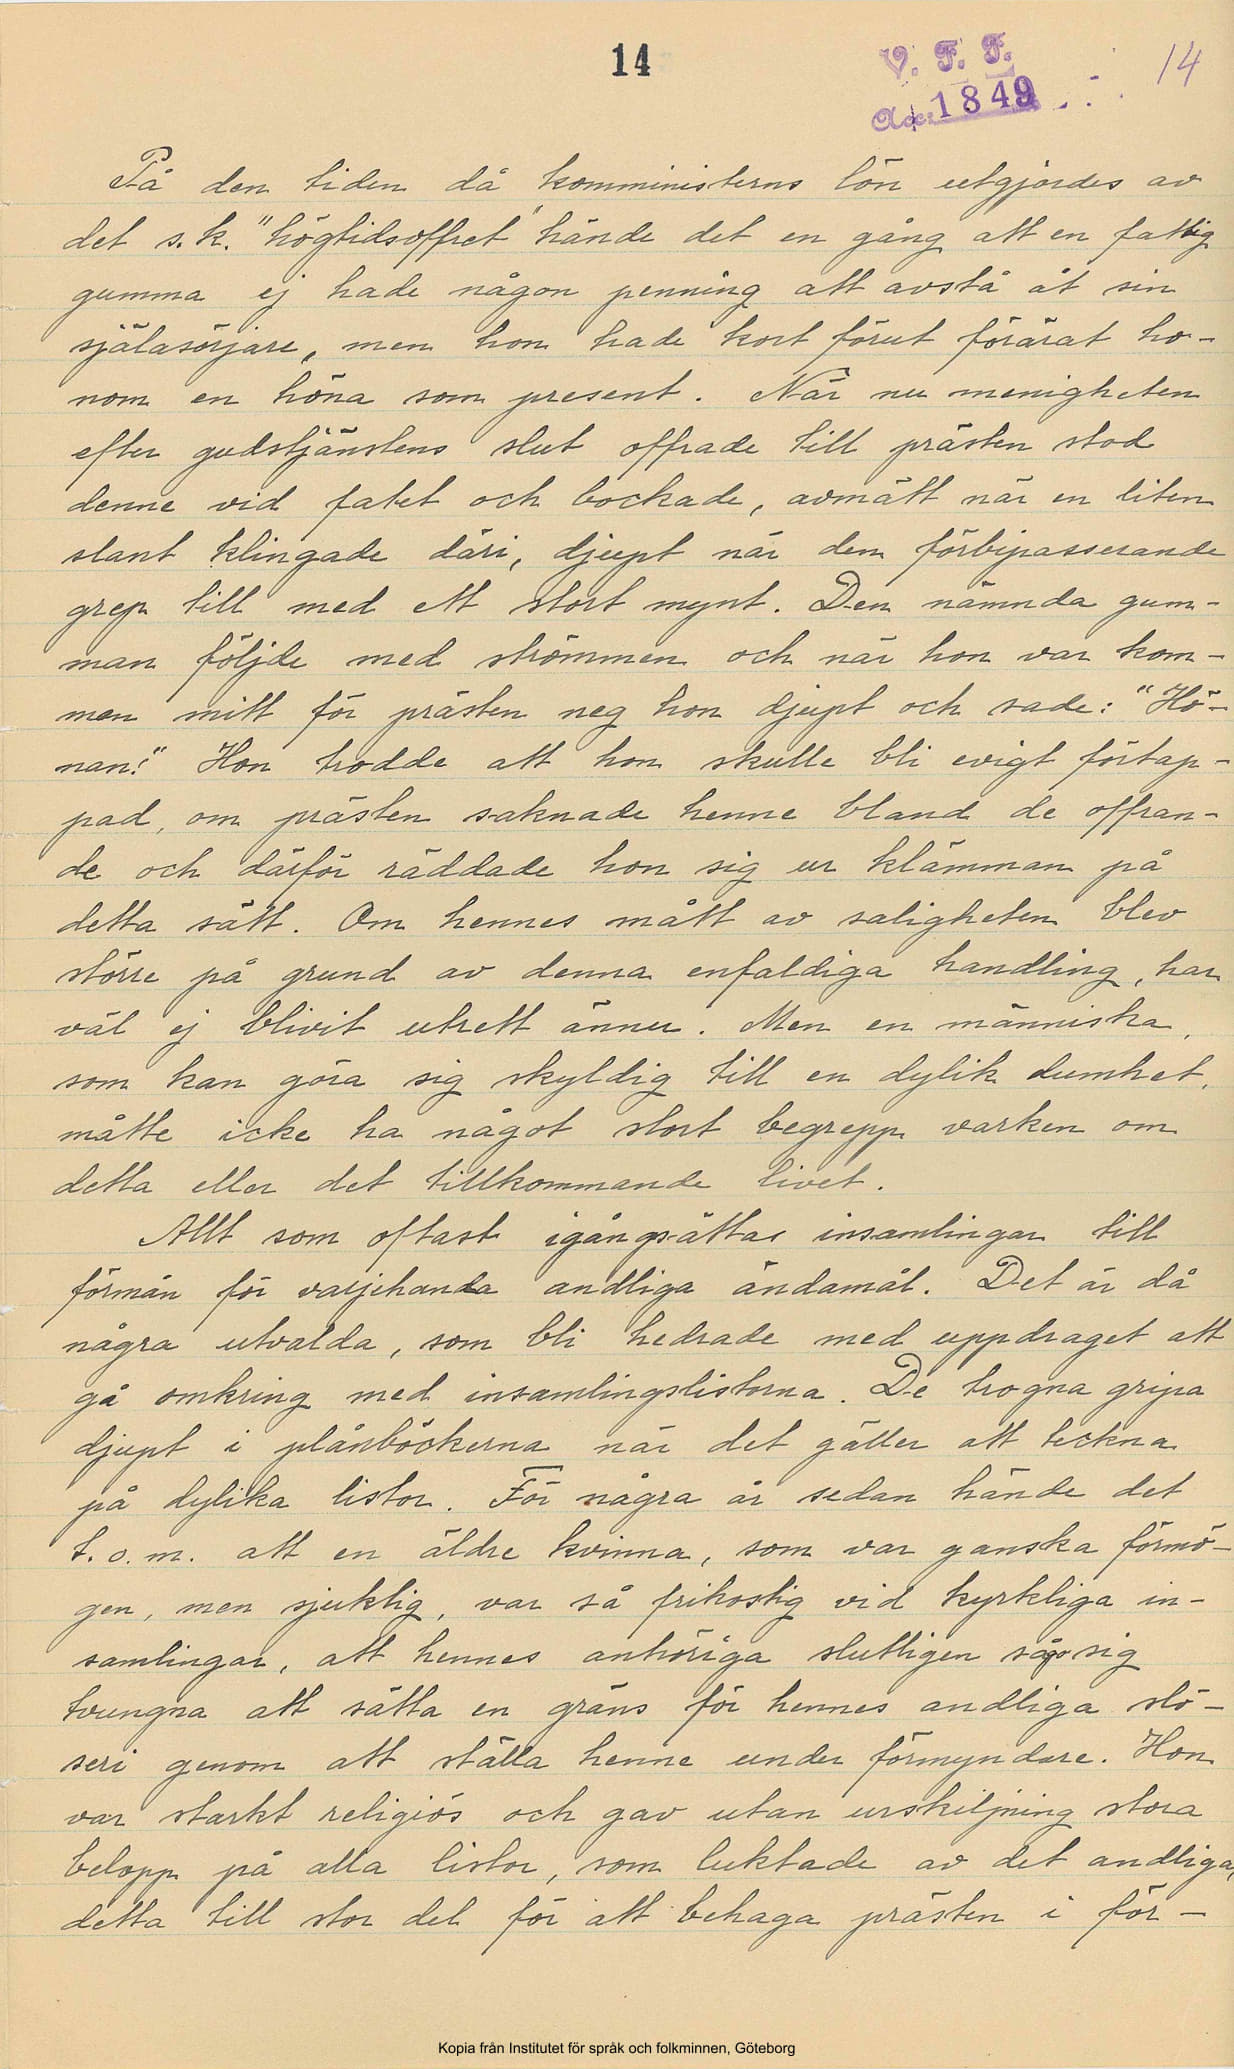 14
V. F. F.
Acc. 1849
14
På den tiden då komministerns lön utgjordes av
det s.k. "högtidsoffret" hände det en gång att en fattig
gumma ej hade någon penning att avstå åt sin
själasörjare, men hon hade kort förut förärat ho-
nom en höna som present. När nu menigheten
efter gudstjänstens slut offrade till prästen stod
denne vid fatet och bockade, avmätt när en liten
slant klingade däri, djupt när den förbipasserande
grep till med ett stort mynt. Den nämnda gum-
man följde med strömmen och när hon var kom-
men mitt för prästen neg hon djupt och sade: "Hö-
nan!" Hon trodde att hon skulle bli evigt förtap-
pad, om prästen saknade henne bland de offran-
de och därför räddade hon sig ur klämman på
detta sätt. Om hennes mått av saligheten blev
större på grund av denna enfaldiga handling, har
väl ej blivit utrett ännu. Men en människa,
som kan göra sig skyldig till en dylik dumhet,
måtte icke ha något stort begrepp varken om
detta eller det tillkommande livet.
Allt som oftast igångsättas insamlingar till
förmån för varjehanda andliga ändamål. Det är då
några utvalda, som bli hedrade med uppdraget att
gå omkring med insamlingslistorna. De trogna gripa
djupt i plånböckerna när det gäller att teckna
på dylika listor. För några år sedan hände det
t.o.m. att en äldre kvinna, som var ganska förmö-
gen, men sjuklig, var så frikostig vid kyrkliga in-
samlingar, att hennes anhöriga slutligen sågo sig
tvungna att sätta en gräns för hennes andliga slö-
seri genom att ställa henne under förmyndare. Hon
var starkt religiös och gav utan urskiljning stora
belopp på alla listor, som luktade av det andliga,
detta till stor del för att behaga prästen i för-
Kopia från Institutet för språk och folkminnen, Göteborg